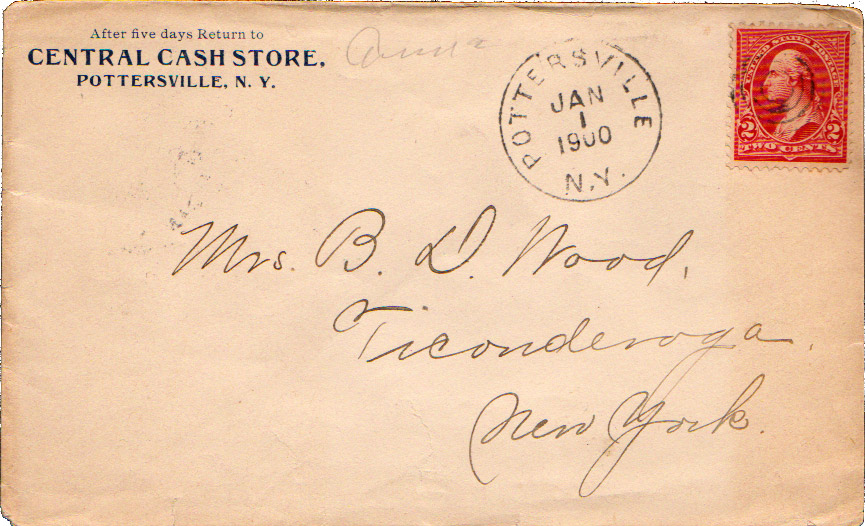 After five days Return to
CENTRAL CASH STORE,
POTTERSVILLE, N. Y.
POTTERSVILLE
JAN
1
1900
N.Y.
UNITED STATES POSTAGE
2 2
TWO CENTS
Mrs. B. D. Wood,
Ticonderoga.
New York.